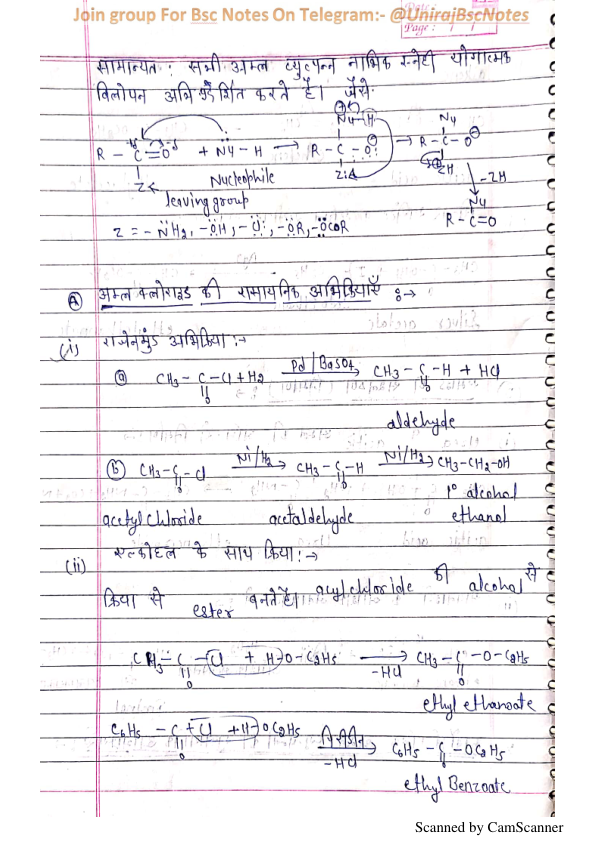 Join group For Bsc Notes On Telegram:- @UnirajBscNotes
Page: / /
सामान्यत: सभी अम्ल व्युत्पन्न नाभिक स्नेही योगात्मक
विलोपन अभि प्रदर्शित करते है। जैसे:
R - C = O + Nu - H → R - C - O → R - C - O
Nu - H
Nu
Z
Z:H
ZH
-ZH
Nucleophile
leaving group
Nu
R - C = O
Z = - NH2, - OH, - Cl, - OR, - OCOR
(A) अम्ल क्लोराइड की रासायनिक अभिक्रियाएँ :→
(i) रोजेनमुंड अभिक्रिया:→
(a) CH3 - C - Cl + H2 Pd/BaSO4 → CH3 - C - H + HCl
O O
aldehyde
(b) CH3 - C - Cl Ni/H2 → CH3 - C - H Ni/H2 → CH3 - CH2 - OH
O O
1° alcohol
acetyl chloride acetaldehyde ethanol
(ii) एल्कोहल के साथ क्रिया:→
acyl chloride की alcohol से
क्रिया से ester बनते है।
CH3 - C - Cl + H - O - C2H5 → CH3 - C - O - C2H5
O -HCl O
ethyl ethanoate
C6H5 - C + Cl + H + OC2H5 पिरीडीन → C6H5 - C - OC2H5
O -HCl O
ethyl Benzoate
Scanned by CamScanner